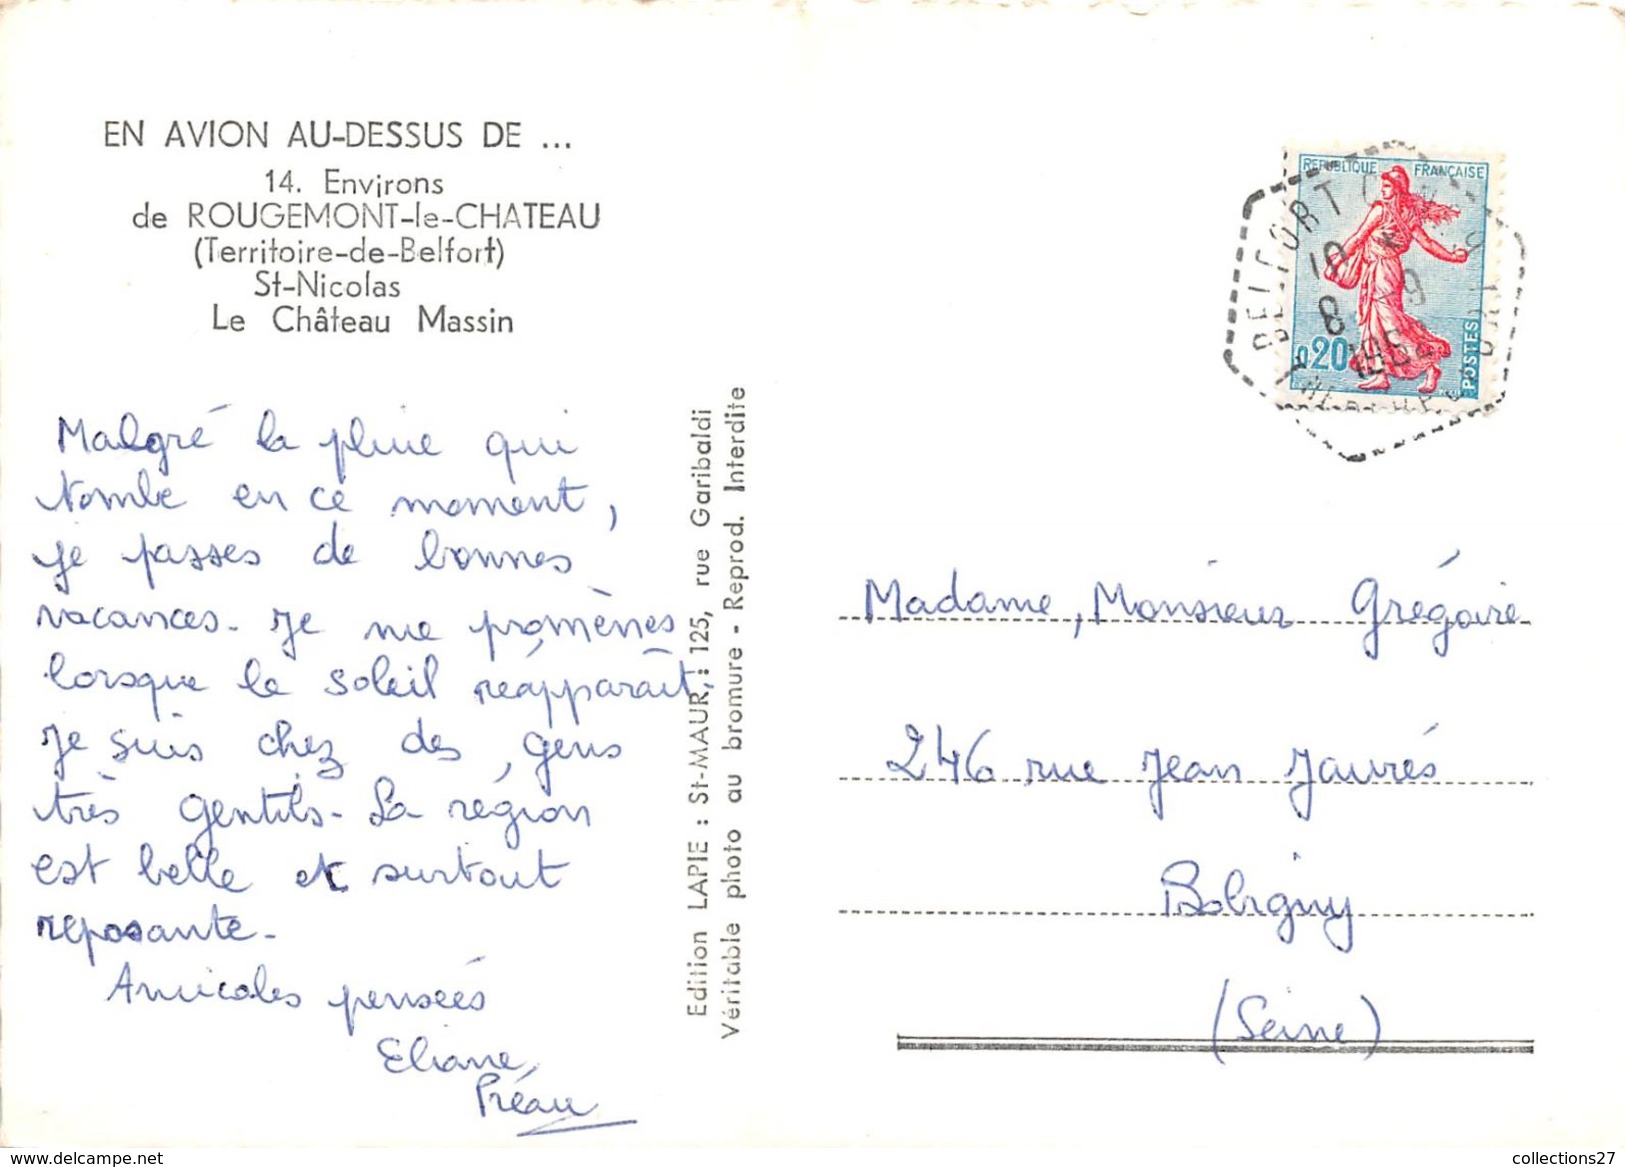 EN AVION AU-DESSUS DE ...
14. Environs
de ROUGEMONT-le-CHATEAU
(Territoire-de-Belfort)
St-Nicolas
Le Château Massin
Malgré la pluie qui
tombe en ce moment,
je passes de bonnes
vacances. Je me promènes
lorsque le soleil réapparaît.
Je suis chez des gens
très gentils. La région
est belle et surtout
reposante.
Amicales pensées
Eliane
Préau
Edition LAPIE : St-MAUR, : 125, rue Garibaldi
Véritable photo au bromure - Reprod. Interdite
REPUBLIQUE FRANÇAISE
0,20
POSTES
BELFORT
10
8 -9
Madame, Monsieur Grégoire
246 rue Jean Jaurés
Bobigny
(Seine)
collections27